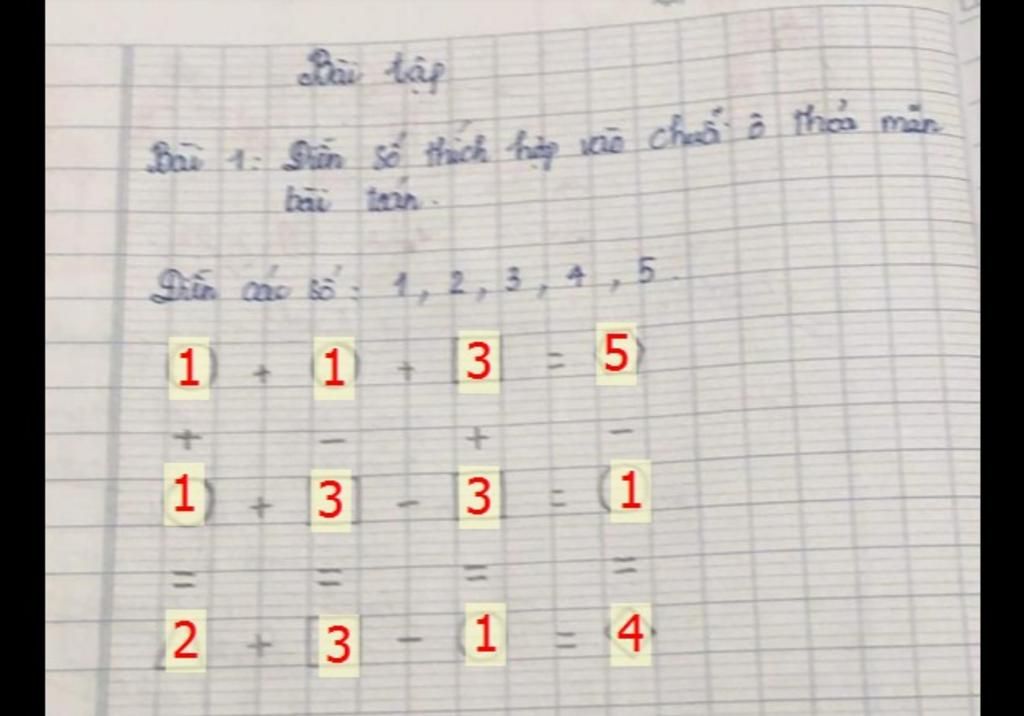 Bài tập
Bài 1: Điền số thích hợp vào chuỗi ô thỏa mãn
bài toán.
Điền các số: 1, 2, 3, 4, 5.
1 + 1 + 3 = 5
+ - + -
1 + 3 - 3 = 1
= = = =
2 + 3 - 1 = 4